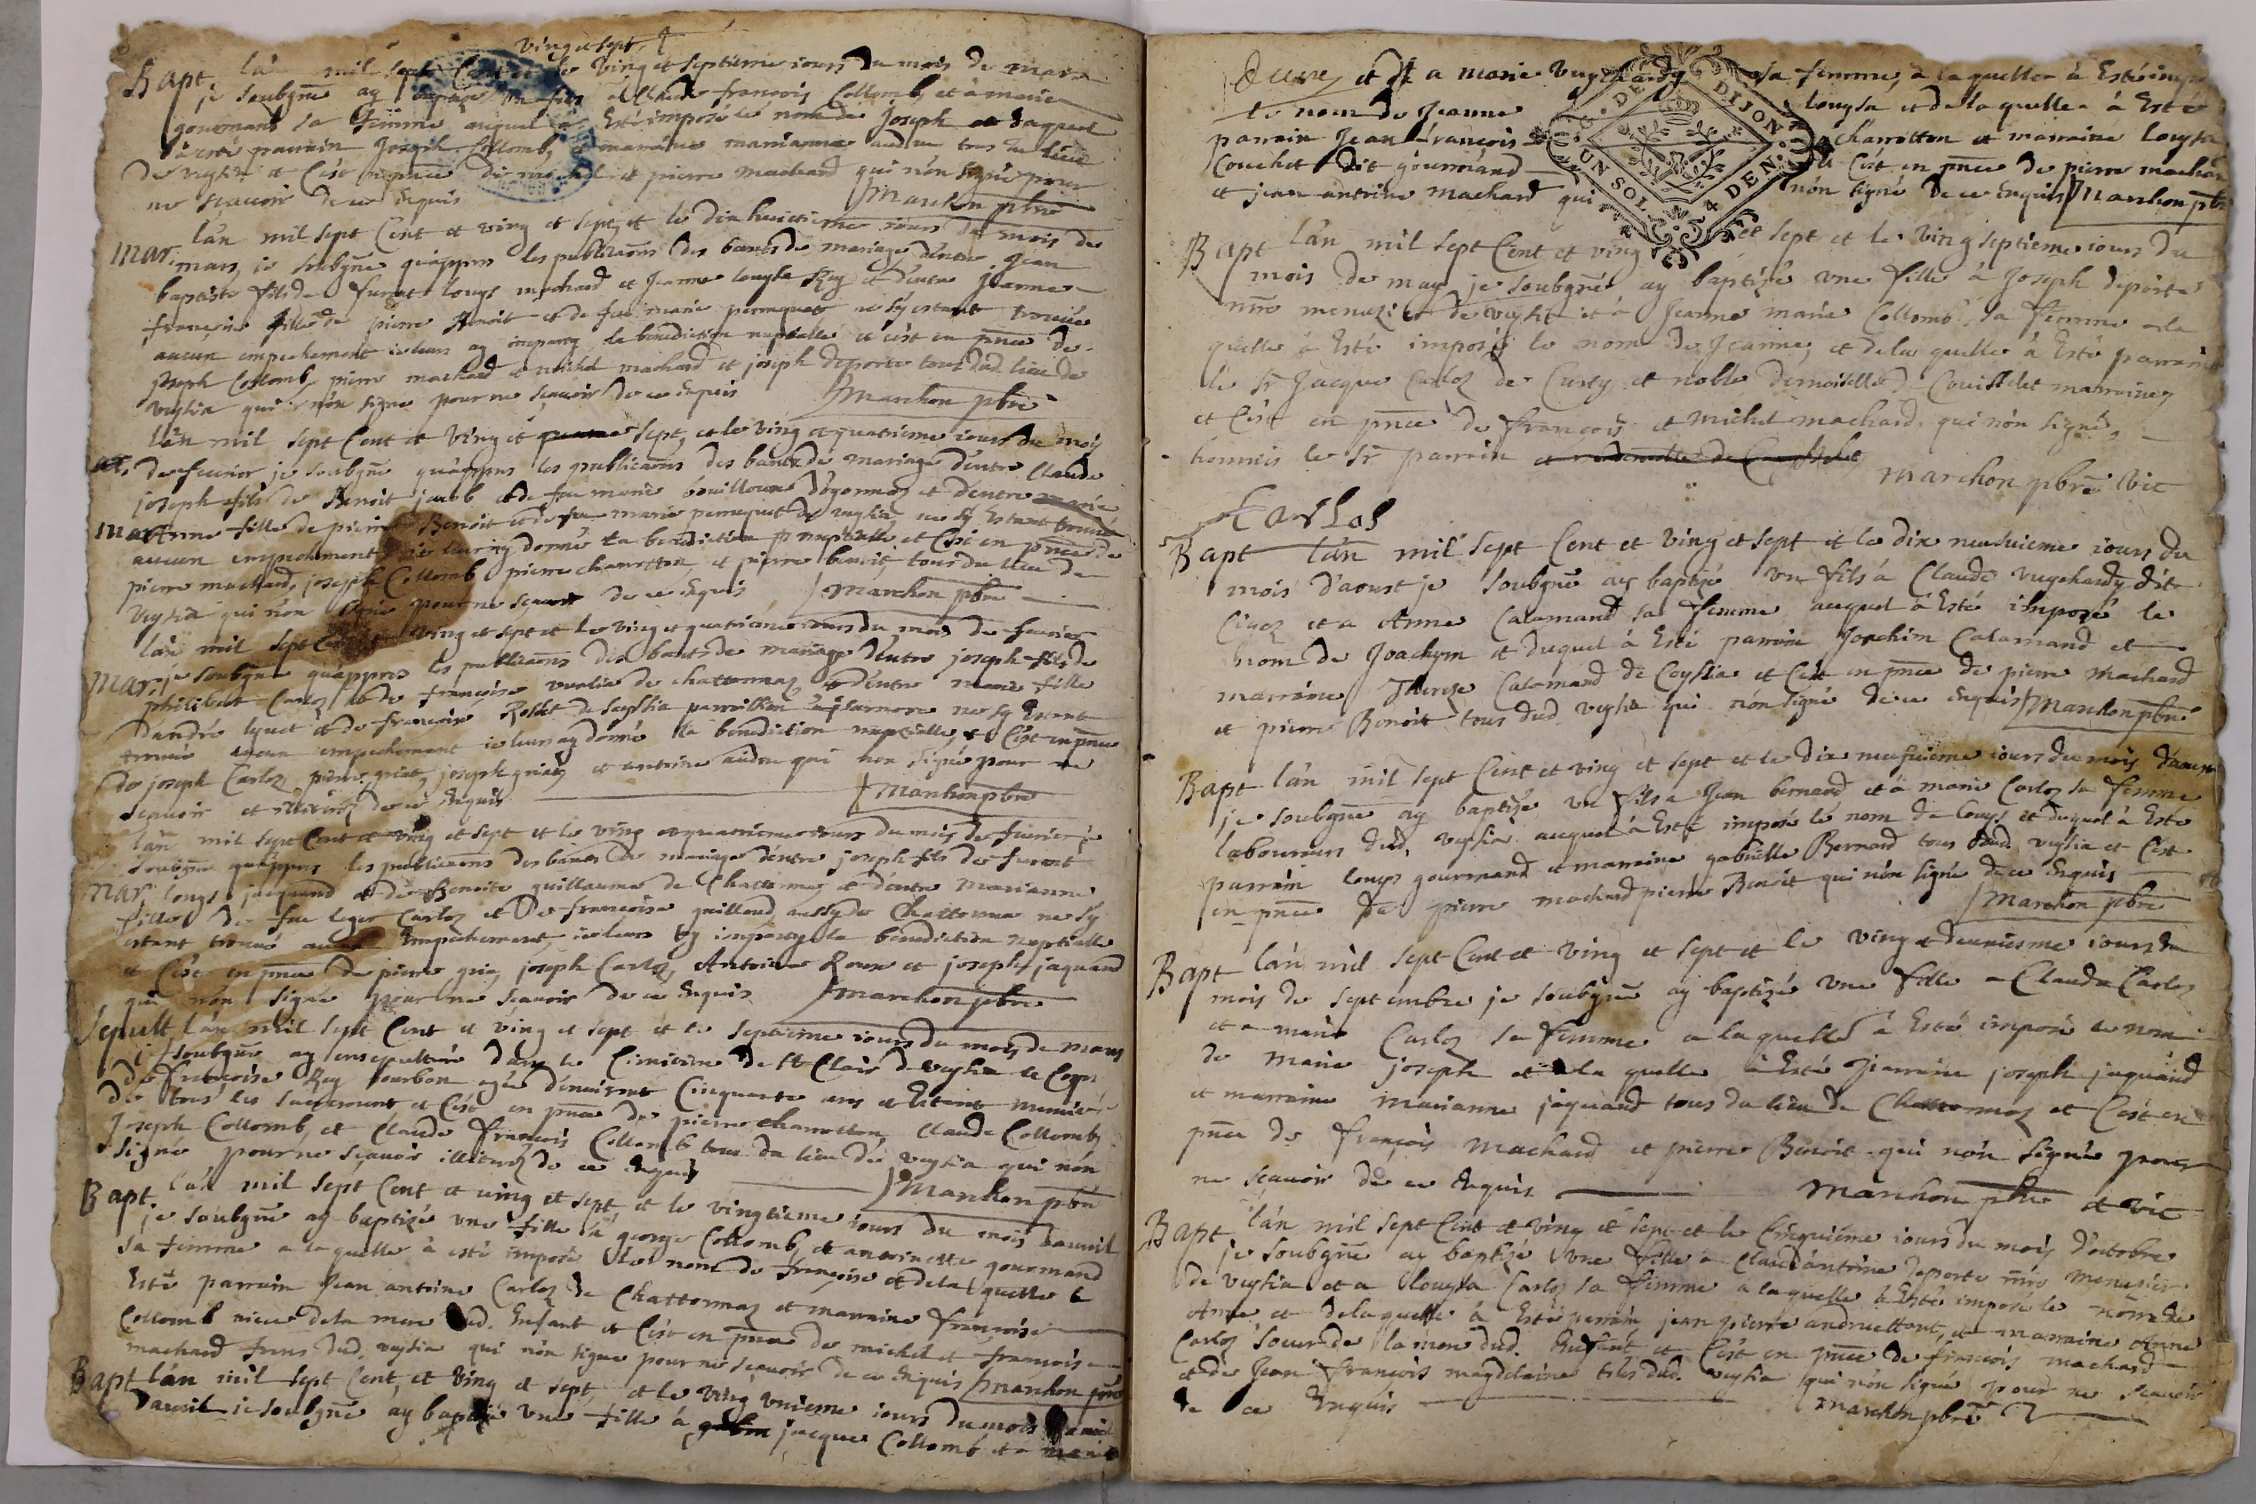 ving et sept
Bapt l'an mil sept Cent et le Ving et septieme iours du mois de mars
je soubgné ay baptizé un fils a Claude francois Collomb et a marie
gourmand sa femme auquel a Esté imposé le nom de Joseph et duquel
a esté parrain Joseph Collomb et maraine marianne tous du lieu
de veyria et C'est en pnce de michel et pierre machard qui n'on signé pour
ne scavoir de ce Enquis Marchon pbre
l'an mil sept Cent et ving et sept et le dix huictieme iours du mois de
Mar. mars, je soubgné qu'appres les publicaons des bancs de mariage d'entre Jean
baptiste fils de furent louys machard et Jeanne louyse Rey et d'entre jeanne
francoise fille de pierre Benoit et de fue marie perrequet ne s'y estant trouvé
aucun empechement ie leurs ay imparty la benediction nuptialle et c'est en pnce de
joseph Collomb, pierre machard et michel machard et joseph deporte tous dud. lieu de
veyria qui n'on signe pour ne sçavoir de ce Enquis Marchon pbre
l'an mil sept Cent et Ving et quatre sept, et le Ving et quatrieme iours du mois
de feurier je soubgné qu'appres les publicaons des bancs de mariage d'entre Claude
joseph fils de Benoit jacob et de fue marie bouilloux d'oyonnaz et d'entre marie
Mar Anne fille de pierre Benoit et de fue marie perrequet de veyria ne s'y Estant trouvé
aucun empechement ie leur ay donné la benediction nuptialle et C'est en pnce de
pierre machard, joseph Collomb pierre charrotton, et pierre benoit, tous du lieu de
Veyria qui n'on signé pour ne scavoir de ce Enquis Marchon pbre
l'an mil sept Cent Ving et sept et le Ving et quatrieme iours du mois de feurier
Mar. je soubgne qu'appres les publicaons des bancs de mariage d'entre joseph fils de
philibert Carloz et de francoise de chattonnaz et d'entre marie fille
d'andré lyuet et de francoise Rosset de ne s'y Estant
trouvé aucun empechement ie leurs ay donné la benediction nuptialle, et C'est en pnce
de joseph Carloz, pierre griaz, joseph griaz et antoine qui non signé pour ne
scavoir et de ce Enquis Marchon pbre
l'an mil sept Cent et ving et sept et le ving et quatrieme iours du mois de feurier je
soubgne qu'appres les publicaons des bancs de mariage d'entre joseph fils de furent
Mar. louys jacquand et de Benoite guillaume de Chattonnaz et d'entre Marianne
fille de fue leger Carloz et De francoise guilland aussy de Chattonnaz ne s'y
estant trouvé aucun Empechement, ie leurs ay imparty la benediction nuptialle
et C'est en pnce de pierre griaz, joseph Carloz, Antoine Roux et joseph jaquand
qui n'on signe pour ne sçavoir de ce Enquis Marchon pbre
Sepult l'an mil sept Cent et ving et sept et le septieme iours du mois de mars
je soubgne ay ensepulturé dans le Cimitiere de St Clair de veyria le Corps
de francoise Rey bourbon agée d'enuiront Cinquante ans et Estant munie
de tous les sacrement et C'est en pnce de pierre charrotton, Claude Collomb,
Joseph Collomb, et Claude francois Collomb tous du lieu de veyria qui n'on
signé pour ne sçavoir illiteréz de ce Enquis Marchon pbre
Bapt. l'an mil sept Cent et ving et sept, et le vingtieme iours du mois d'auvril
je soubgne ay baptizé vne fille a george Collomb, et antoinette gourmand
sa femme a laquelle à esté imposé le nom de francoise et de laquelle à
Esté parrain Jean antoine Carloz de Chattonnaz et marraine francoise
Collomb niece de la mere dud. Enfant et C'est en pnce de michel et francois
machard freres dud. veyria qui n'on signe pour ne scavoir de ce Enquis Marchon pbre
Bapt l'an mil sept Cent, et Ving et sept, et le Ving vnieme iours du mois
d'auvril je soubgné ay baptizé vne fille à jacques Collomb et a marie
et a marie veyhardy sa femme, a laquelle à Esté imposé
le nom de Jeanne louysa et de laquelle à Esté
parrain Jean francois Charrotton et marraine louysa
Couchet dit gourmand et C'est en pnce de pierre machard
et jean antoine machard qui n'on signé de ce Enquis Marchon pbre
G. DE DIJON
UN SOL. 4 DEN.
Bapt l'an mil sept Cent et ving et sept et le Ving septieme iours du
mois de may je soubgné ay baptizé vne fille à Joseph deporte
mre menuzier de veyria et à Jeanne marie Collomb sa femme a la
quelle à Esté imposé le nom de Jeanne, et de la quelle à Esté parrain
le Sr Jacque Carloz de Curty et noble demoiselle Couisselet marraine,
et C'est en pnce de francois et Michel machard qui n'on signé,
hormis le Sr parrain et
Marchon pbre Vic
Carloz
Bapt l'an mil sept Cent et Ving et sept et le dix neufuieme iours du
mois d'aoust je soubgne ay baptizé vn fils a Claude veyhardy dit
Ciuoz et a Anne Calamand sa femme auquel à Esté imposé le
nom de Joachym et duquel à Esté parrain Joachim Calamand et
marraine Therese Calamand de Ceyssia et C'est en pnce de pierre machard
et pierre Benoit tous dud. Veyria qui n'on signé de ce Enquis Marchon pbre
Bapt l'an mil sept Cent et ving et sept et le dix neufuieme iours du mois d'aoust
je soubgne ay baptizé vn fils a Jean bernard et à marie Carloz sa femme
laboureurs dud. veyria auquel à Esté imposé le nom de louys et duquel à Esté
parrain louys gourmand et marraine gabrielle Bernard tous dud. veyria et C'est
en pnce de pierre machard pierre Benoit qui n'on signé de ce Enquis
Marchon pbre
Bapt l'an mil sept Cent et ving et sept et le ving et deuxiesme iours du
mois de septembre je soubgne ay baptizé vne fille a Claude Carloz
et a marie Carloz sa femme a laquelle à Esté imposé le nom
de marie joseph et de la quelle à Esté parrain joseph jaquand
et marraine marianne jaquand tous du lieu de Chattonnaz et C'est en
pnce de françois machard et pierre Benoit qui n'on signé pour
ne scavoir de ce Enquis Marchon pbre et vic
Bapt l'an mil sept Cent et ving et sept et le Cinquieme iours du mois d'octobre
je soubgne ay baptizé vne fille a Claud'antoine deporte mre menuzier
de veyria et a louysa Carloz sa femme a laquelle à Esté imposé le nom de
Anne et de laquelle à Esté parrain jean pierre andruettant, et marraine Anne
Carloz soeur de la mere dud. Enfant et C'est en pnce de francois machard
et de Jean francois magdelaine tous dud. veyria qui non signé pour ne scavoir
de ce Enquis Marchon pbre